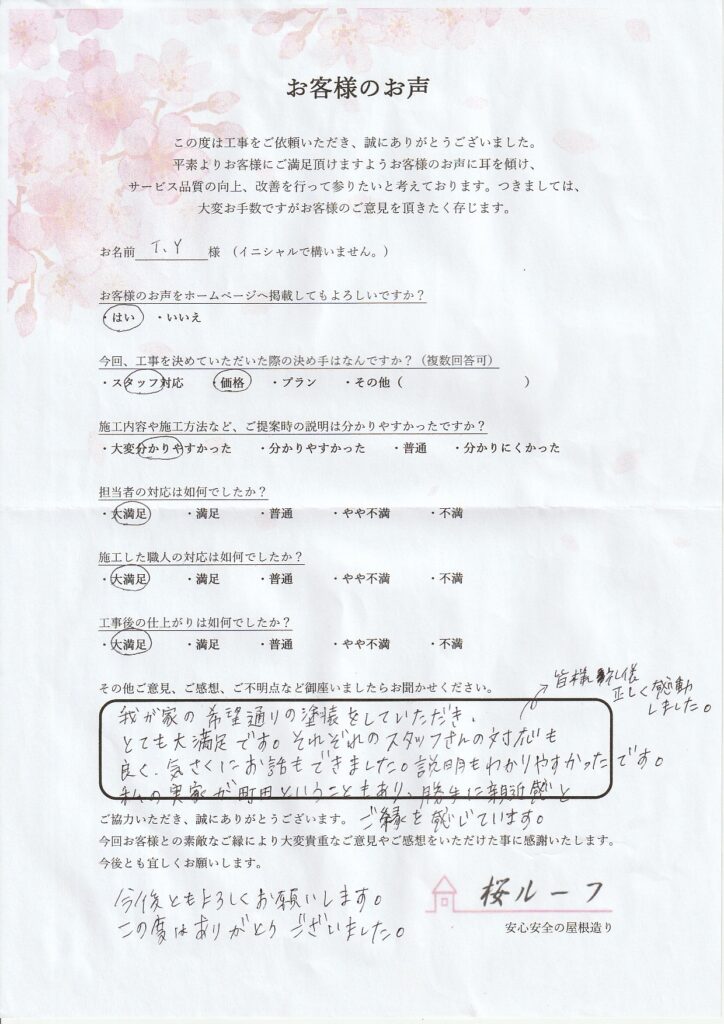 お客様のお声
この度は工事をご依頼いただき、誠にありがとうございました。
平素よりお客様にご満足頂けますようお客様のお声に耳を傾け、
サービス品質の向上、改善を行って参りたいと考えております。つきましては、
大変お手数ですがお客様のご意見を頂きたく存じます。
お名前 T.Y 様 （イニシャルで構いません。）
お客様のお声をホームページへ掲載してもよろしいですか？
・はい ・いいえ
今回、工事を決めていただいた際の決め手はなんですか？（複数回答可）
・スタッフ対応 ・価格 ・プラン ・その他（ ）
施工内容や施工方法など、ご提案時の説明は分かりやすかったですか？
・大変分かりやすかった ・分かりやすかった ・普通 ・分かりにくかった
担当者の対応は如何でしたか？
・大満足 ・満足 ・普通 ・やや不満 ・不満
施工した職人の対応は如何でしたか？
・大満足 ・満足 ・普通 ・やや不満 ・不満
工事後の仕上がりは如何でしたか？
・大満足 ・満足 ・普通 ・やや不満 ・不満
その他ご意見、ご感想、ご不明点など御座いましたらお聞かせください。
皆様礼儀
正しく感動
しました。
我が家の希望通りの塗装をしていただき、
とても大満足です。それぞれのスタッフさんの対応も
良く、気さくにお話もできました。説明もわかりやすかったです。
私の実家が町田ということもあり、勝手に親近感と
ご縁を感じています。
ご協力いただき、誠にありがとうございます。
今回お客様との素敵なご縁により大変貴重なご意見やご感想をいただけた事に感謝いたします。
今後とも宜しくお願いします。
今後ともよろしくお願いします。
この度はありがとうございました。
桜ルーフ
安心安全の屋根造り